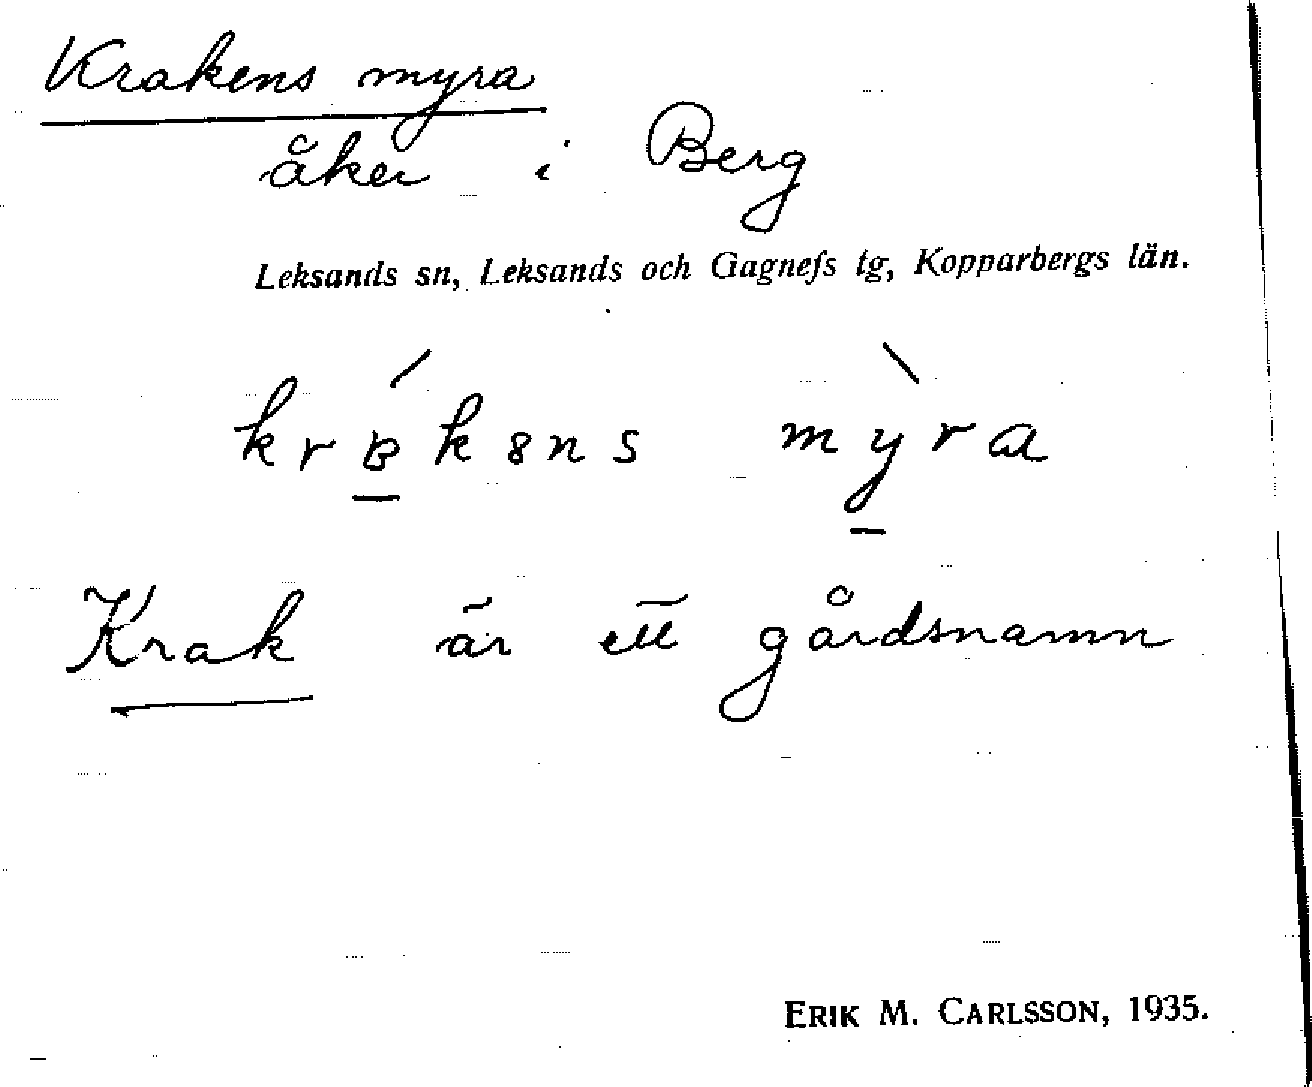 Krakens myra
åker i Berg
Leksands sn, Leksands och Gagnefs tg, Kopparbergs län.
myra
Krak är ett gårdsnamn
ERIK M. CARLSSON, 1935.